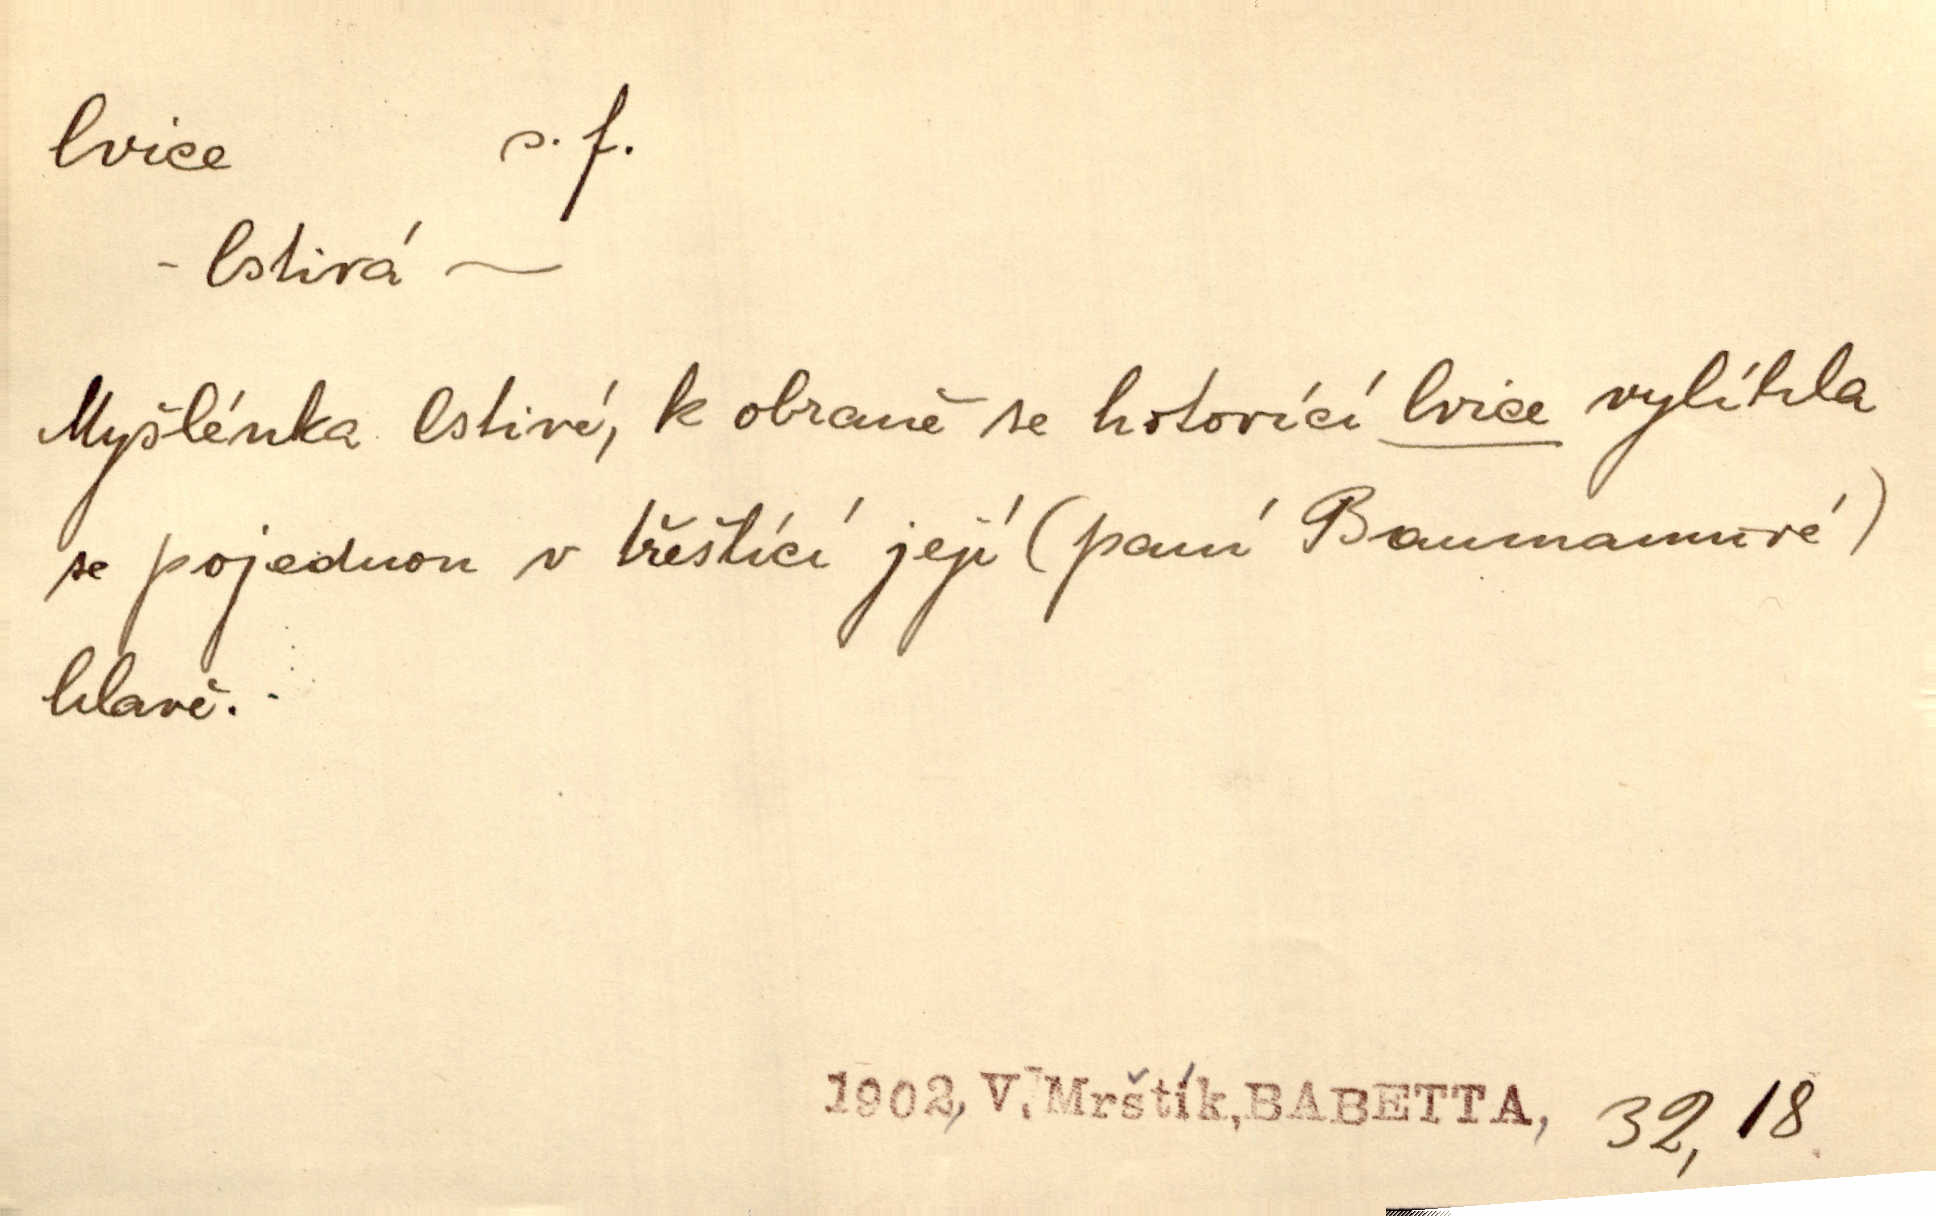 lvice s. f.
- lstivá —
Myšlénka lstivé, k obraně se hotovící lvice vylíhla
se pojednou v třeštící její (paní Baumannové)
hlavě.
1902, V. Mrštík, BABETTA, 32, 18